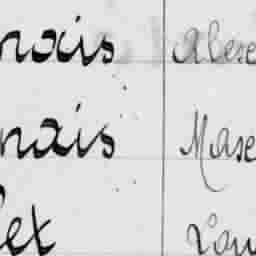 nais Alexe
nais Mase
let Lou